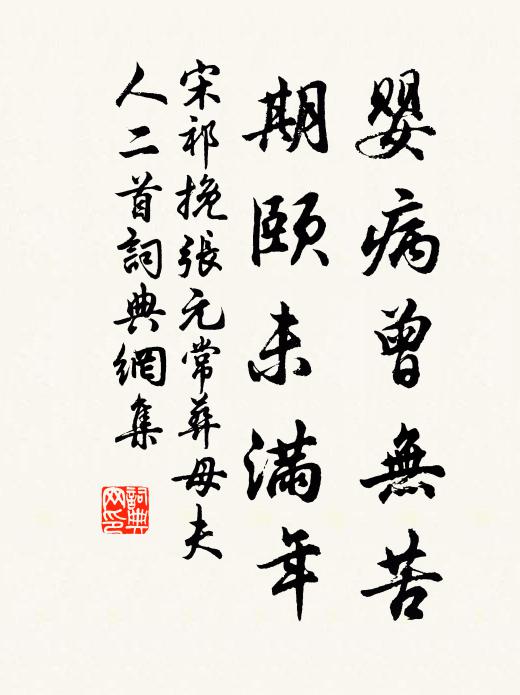 嬰病曾無苦
期頤未滿年
宋祁挽張元常葬母夫
人二首詞典網集
詞典
网印